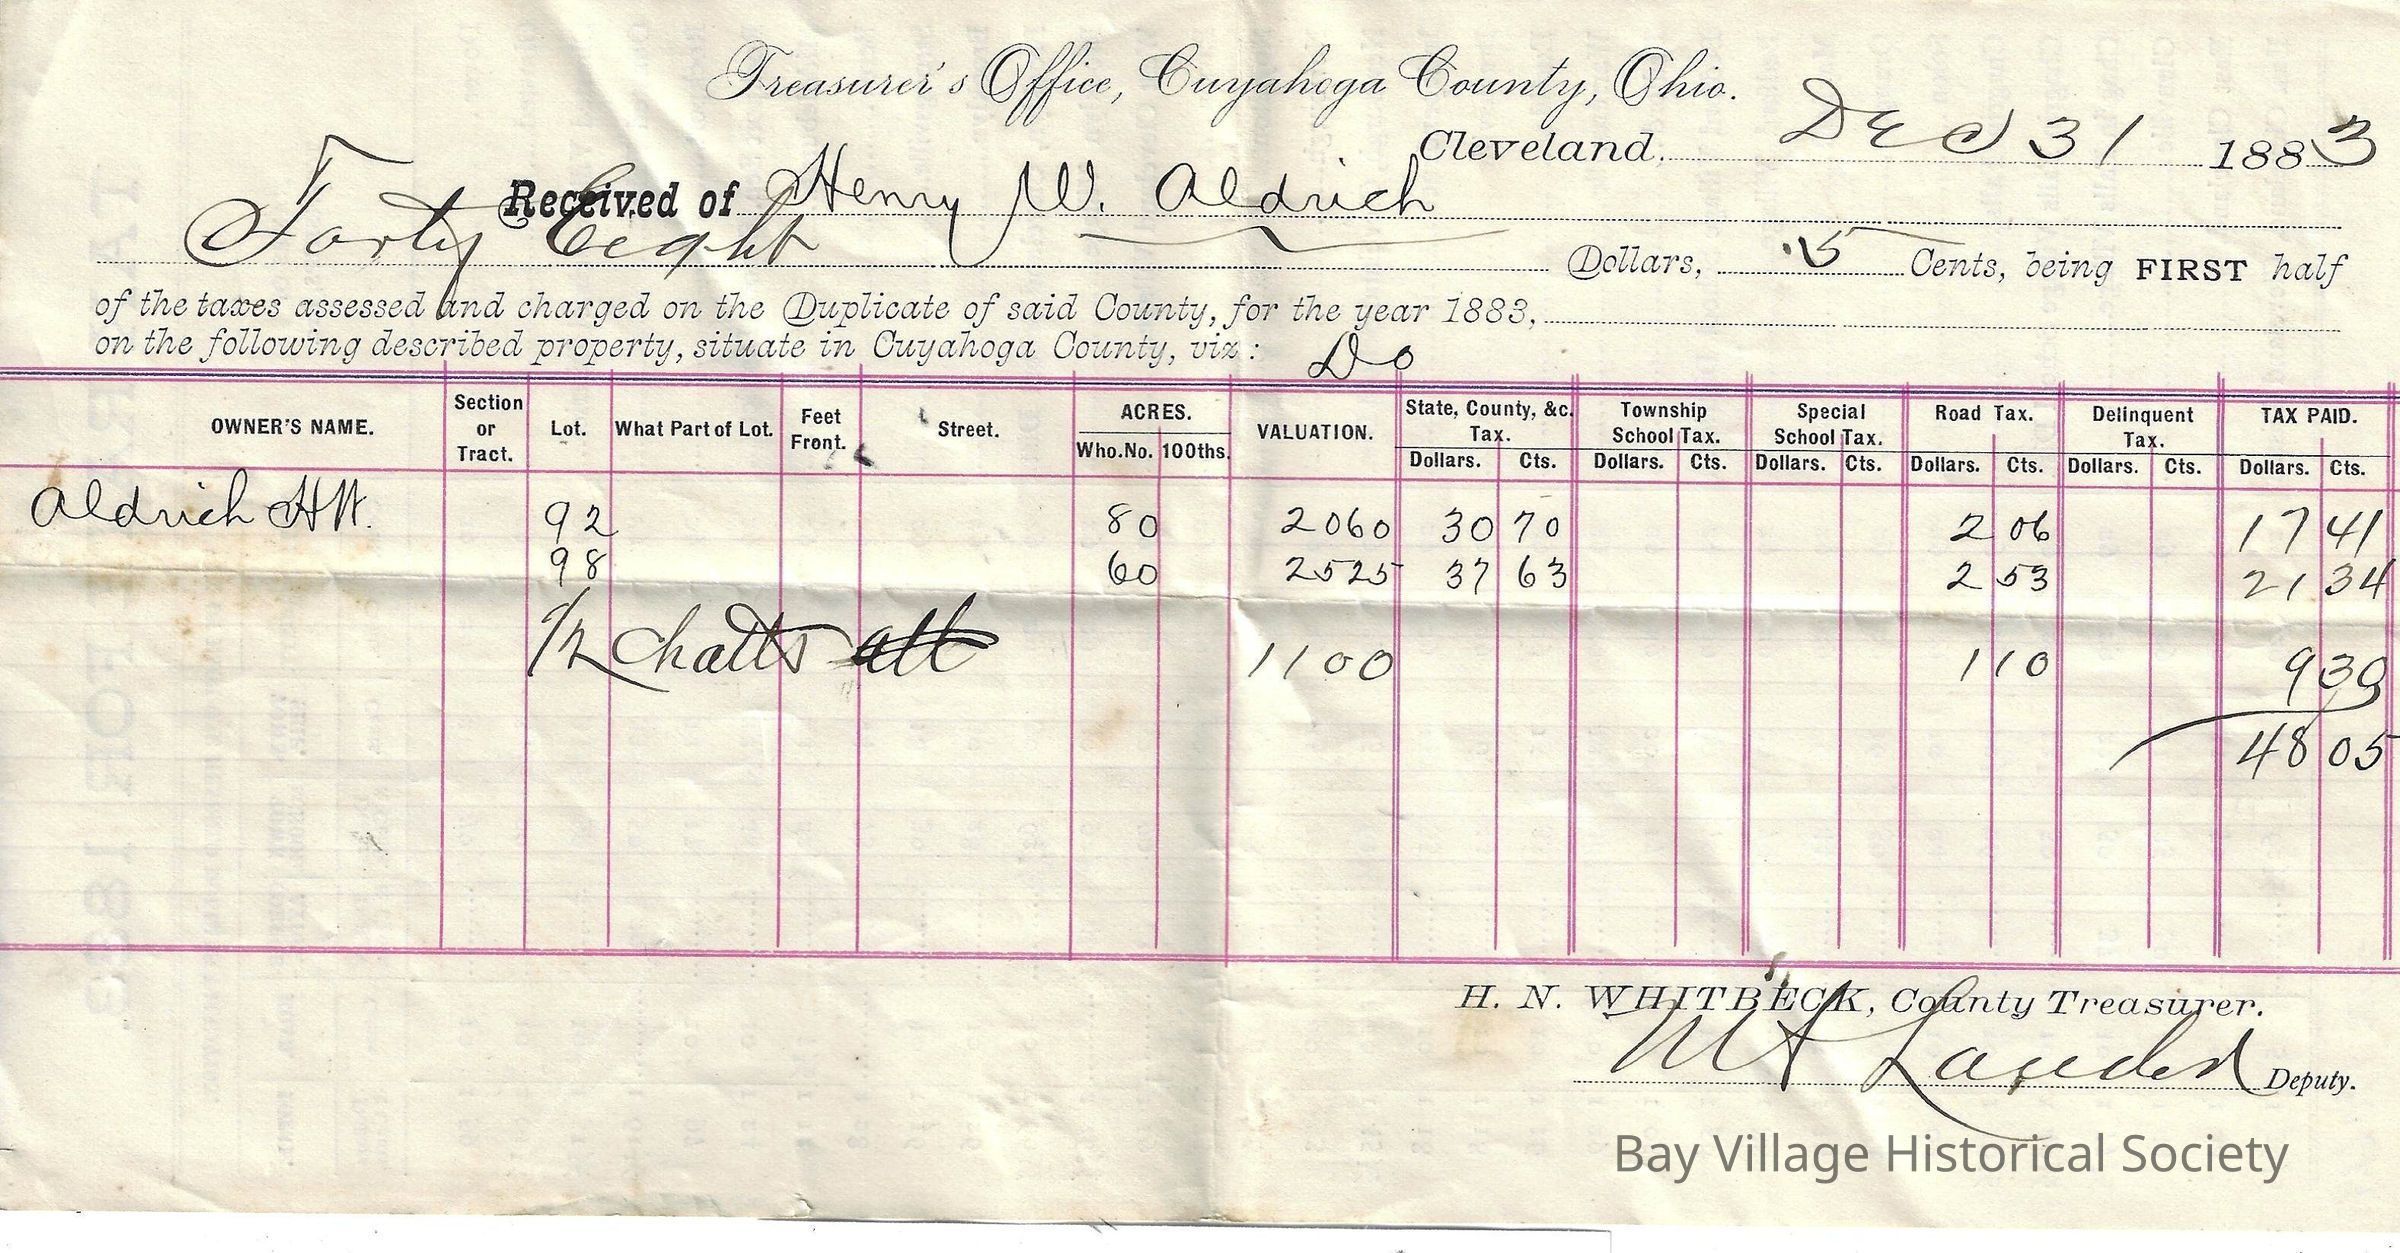 Treasurer's Office, Cuyahoga County, Ohio.
Cleveland. Dec 31 1883
Received of Henry W. Aldrich
Forty Eight Dollars, .5 Cents, being FIRST half
of the taxes assessed and charged on the Duplicate of said County, for the year 1883,
on the following described property, situate in Cuyahoga County, viz: Do
OWNER'S NAME. Section or Tract. Lot. What Part of Lot. Feet Front. Street. ACRES. Who.No. 100ths. VALUATION. State, County, &c. Tax. Dollars. Cts. Township School Tax. Dollars. Cts. Special School Tax. Dollars. Cts. Road Tax. Dollars. Cts. Delinquent Tax. Dollars. Cts. TAX PAID. Dollars. Cts.
Aldrich H W. 92 80 2060 30 70 2 06 17 41
98 60 2525 37 63 2 53 21 34
1/2 Chatts 1100 1 10 9 30
48 05
H. N. WHITBECK, County Treasurer.
Deputy.
Bay Village Historical Society